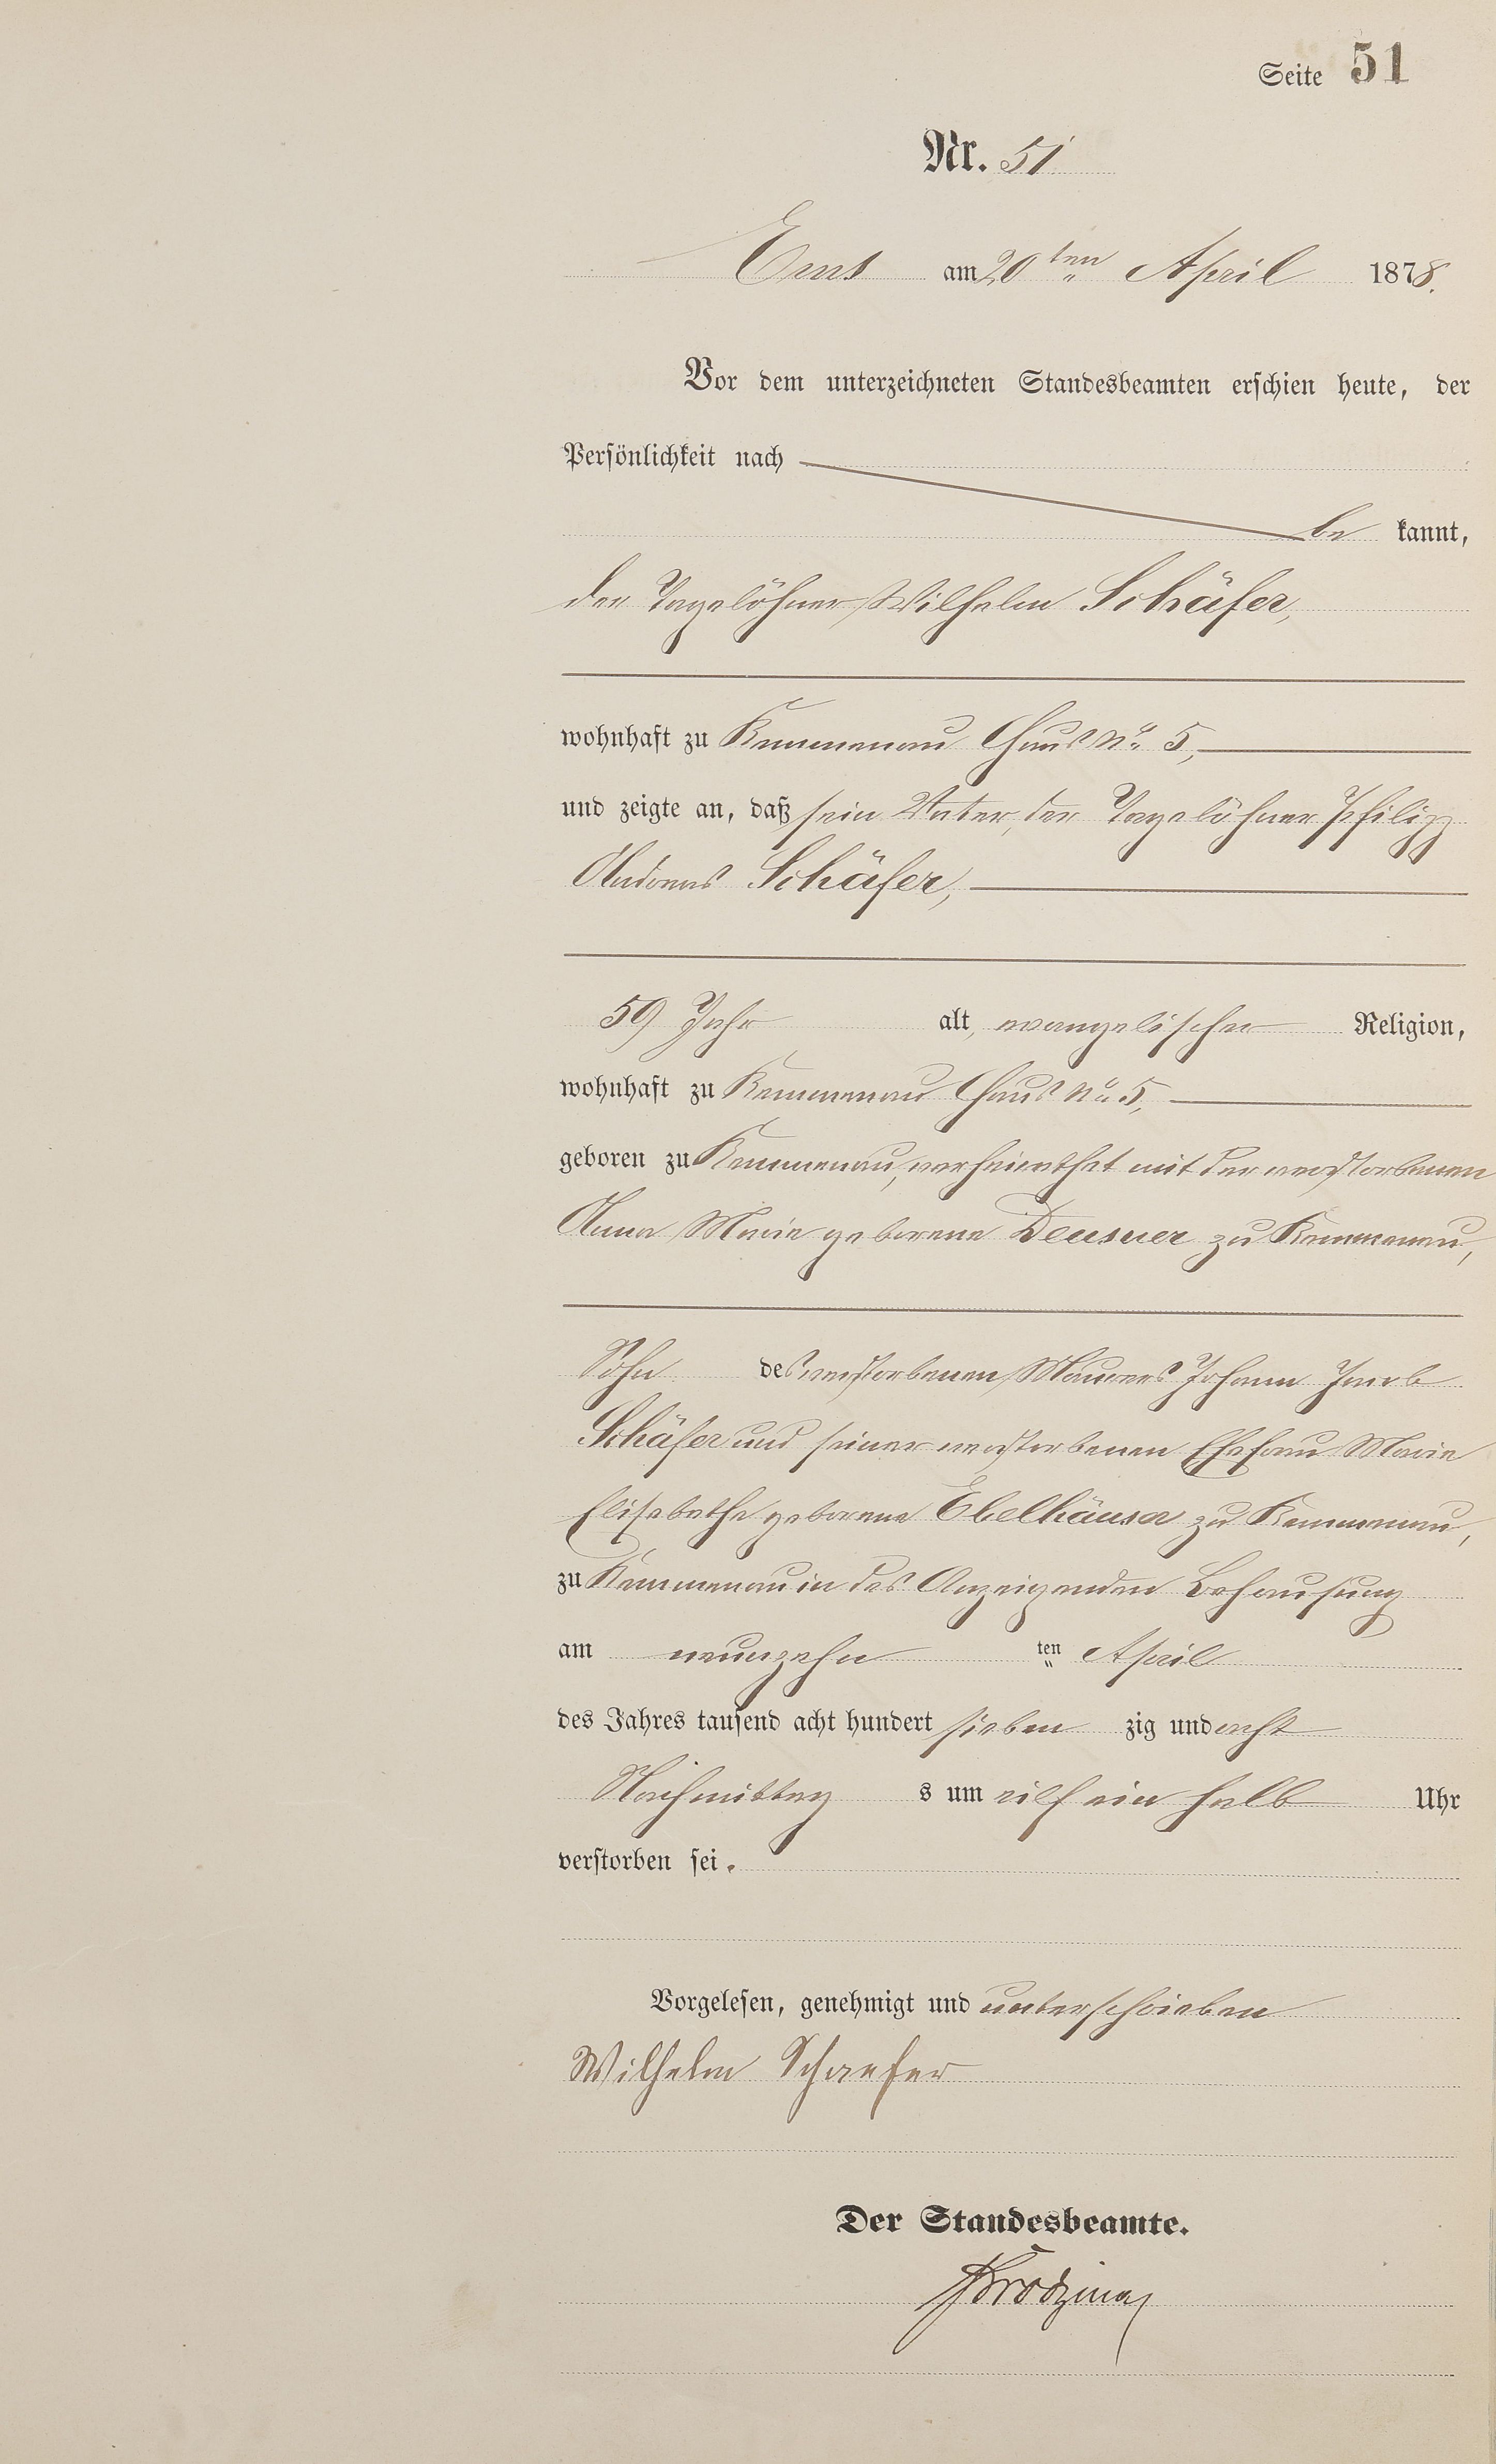 Seite 51
Nr. 51
Ems am 20ten April 1878.
Vor dem unterzeichneten Standesbeamten erschien heute, der
Persönlichkeit nach
be kannt,
der Tagelöhner Wilhelm Schäfer,
wohnhaft zu Kemmenau Haus No 5,
und zeigte an, daß sein Vater, der Tagelöhner Philipp
Andreas Schäfer,
59 Jahr alt, evangelischer Religion,
wohnhaft zu Kemmenau Haus No 5,
geboren zu Kemmenau, verheirathet mit der verstorbenen
Anna Marie geborene Deusner zu Kemmenau,
Sohn des verstorbenen Maurers Johann Jacob
Schäfer und seiner verstorbenen Ehefrau Marie
Elisabethe geborene Ebelhäuser zu Kemmenau,
zu Kemmenau in des Anzeigenden Behausung
am neunzehn ten April
des Jahres tausend acht hundert sieben zig und acht
Nachmittag s um eilf ein halb Uhr
verstorben sei.
Vorgelesen, genehmigt und unterschrieben
Wilhelm Schaefer
Der Standesbeamte.